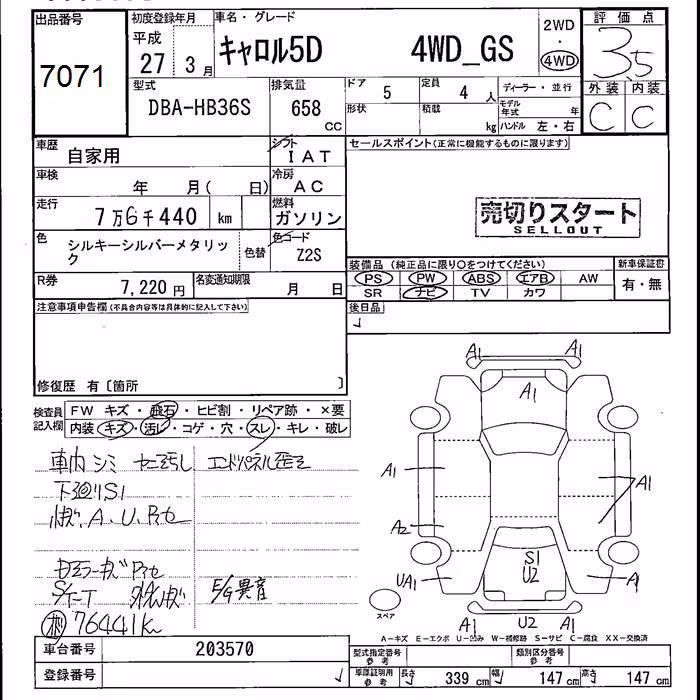 出品番号
7071
初度登録年月
平成
27 3月
車名・グレード
キャロル5D 4WD_GS
2WD
・
4WD
評価点
3.5
外装 内装
C C
型式
DBA-HB36S
排気量
658
CC
ドア
5
定員
4人
形状
積載
kg
ディーラー・並行
モデル年式 年
ハンドル 左・右
車歴
自家用
シフト
IAT
セールスポイント(正常に機能するものに限ります)
車検
年 月( 日)
冷房
AC
走行
7万6千440 km
燃料
ガソリン
売切りスタート
SELLOUT
色
シルキーシルバーメタリック
色替
色コード
Z2S
装備品(純正品に限り○をつけてください)
新車保証書
PS PW ABS エアB AW
有・無
SR ナビ TV カワ
R券
7,220円
名変通知期限
月 日
後日品
注意事項申告欄(不具合内容等は具体的に記入して下さい)
修復歴 有〔箇所 〕
検査員記入欄
FW キズ・飛石・ヒビ割・リペア跡・×要
内装 キズ・汚レ・コゲ・穴・スレ・キレ・破レ
車内シミ エンドパネル歪
下廻りS1
A.U.
異音
76441km
A1 A1
A1
A1 A1
A2
S1
U2
UA1 A1
A1 U2 A1
スペア
A-キズ E-エクボ U-凹み W-補修跡 S-サビ C-腐食 XX-交換済
車台番号
203570
登録番号
型式指定番号
参考
類別区分番号
参考
車庫証明用
参考
長さ 339cm 幅 147cm 高さ 147cm